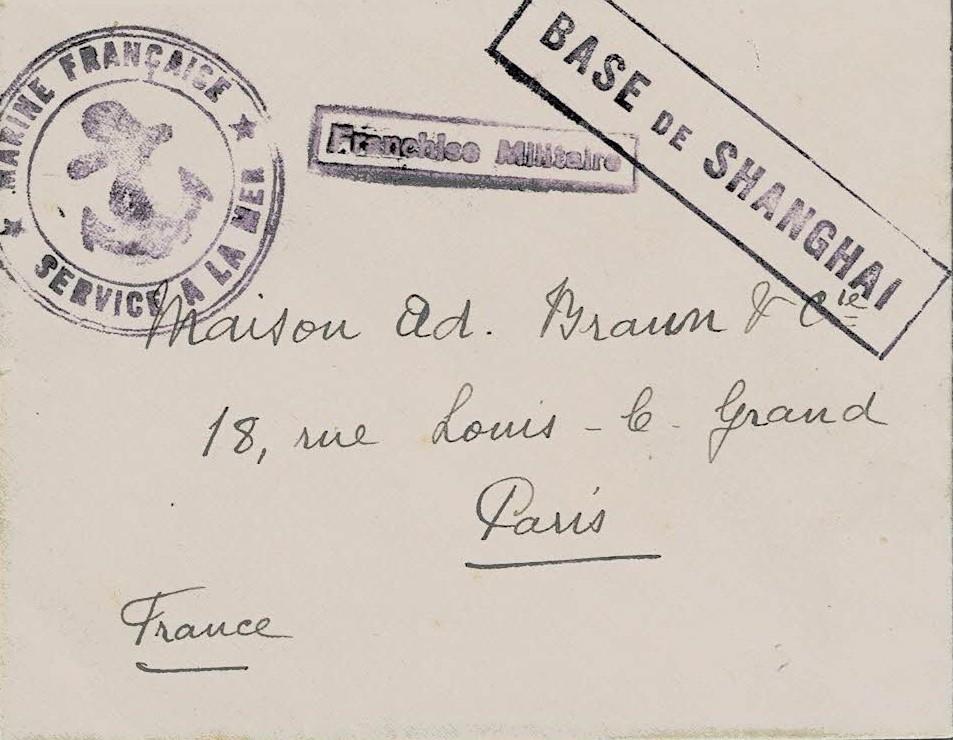 MARINE FRANÇAISE
SERVICE A LA MER
Franchise Militaire
BASE DE SHANGHAI
Maison Ad. Braun & Cie
18, rue Louis-le-Grand
Paris
France